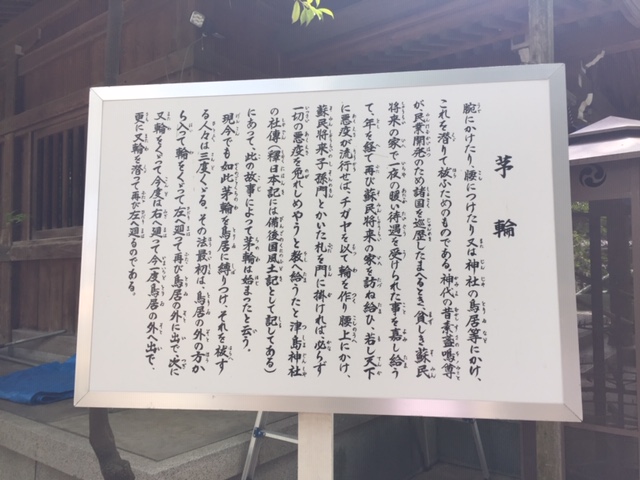 茅輪
腕にかけたり、腰につけたり又は神社の鳥居等にかけ、
これを潜りて祓ふためのものである。神代の昔素盞鳴尊
が、民業開発のため諸国を巡歴したまへるとき、貧しき蘇民
将来の家で、一夜の暖い待遇を受けられた事を嘉し給う
て、年を経て再び蘇民将来の家を訪ね給ひ、若し天下
に悪疫が流行せば、チガヤを以て輪を作り腰上にかけ、
蘇民将来子孫門とかいた札を門に掛ければ必らず
一切の悪疫を免れしめやうと教へ給うたと津島神社
の社傳（釋日本記には備後国風土記として記してある）
にあって、此の故事によって茅輪は始まったと云う。
現今でも如此茅輪を鳥居に縛りつけ、それを祓す
る人々は三度くゞる。その法最初は、鳥居の外の方か
ら入って輪をくゞって左へ廻って再び鳥居の外に出で、次に
又輪をくゞって今度は右へ廻って今一度鳥居の外へ出で、
更に又輪を潜って再び左へ廻るのである。